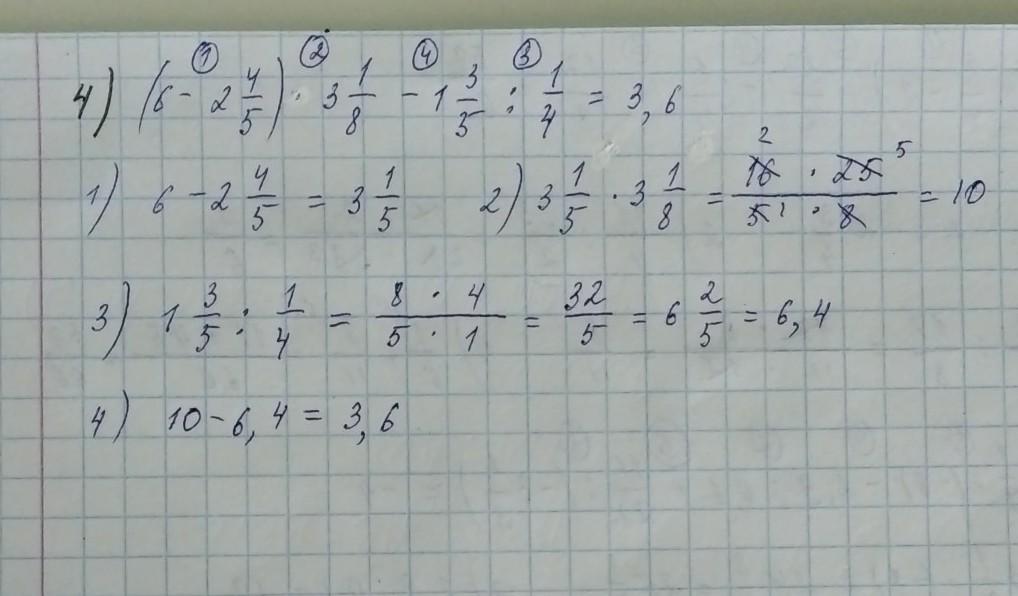 ① ② ④ ③
4) (6 - 2 4/5) · 3 1/8 - 1 3/5 : 1/4 = 3,6
1) 6 - 2 4/5 = 3 1/5 2) 3 1/5 · 3 1/8 = 16 2 · 25 5 / 5 1 · 8 = 10
3) 1 3/5 : 1/4 = 8 · 4 / 5 · 1 = 32/5 = 6 2/5 = 6,4
4) 10 - 6,4 = 3,6